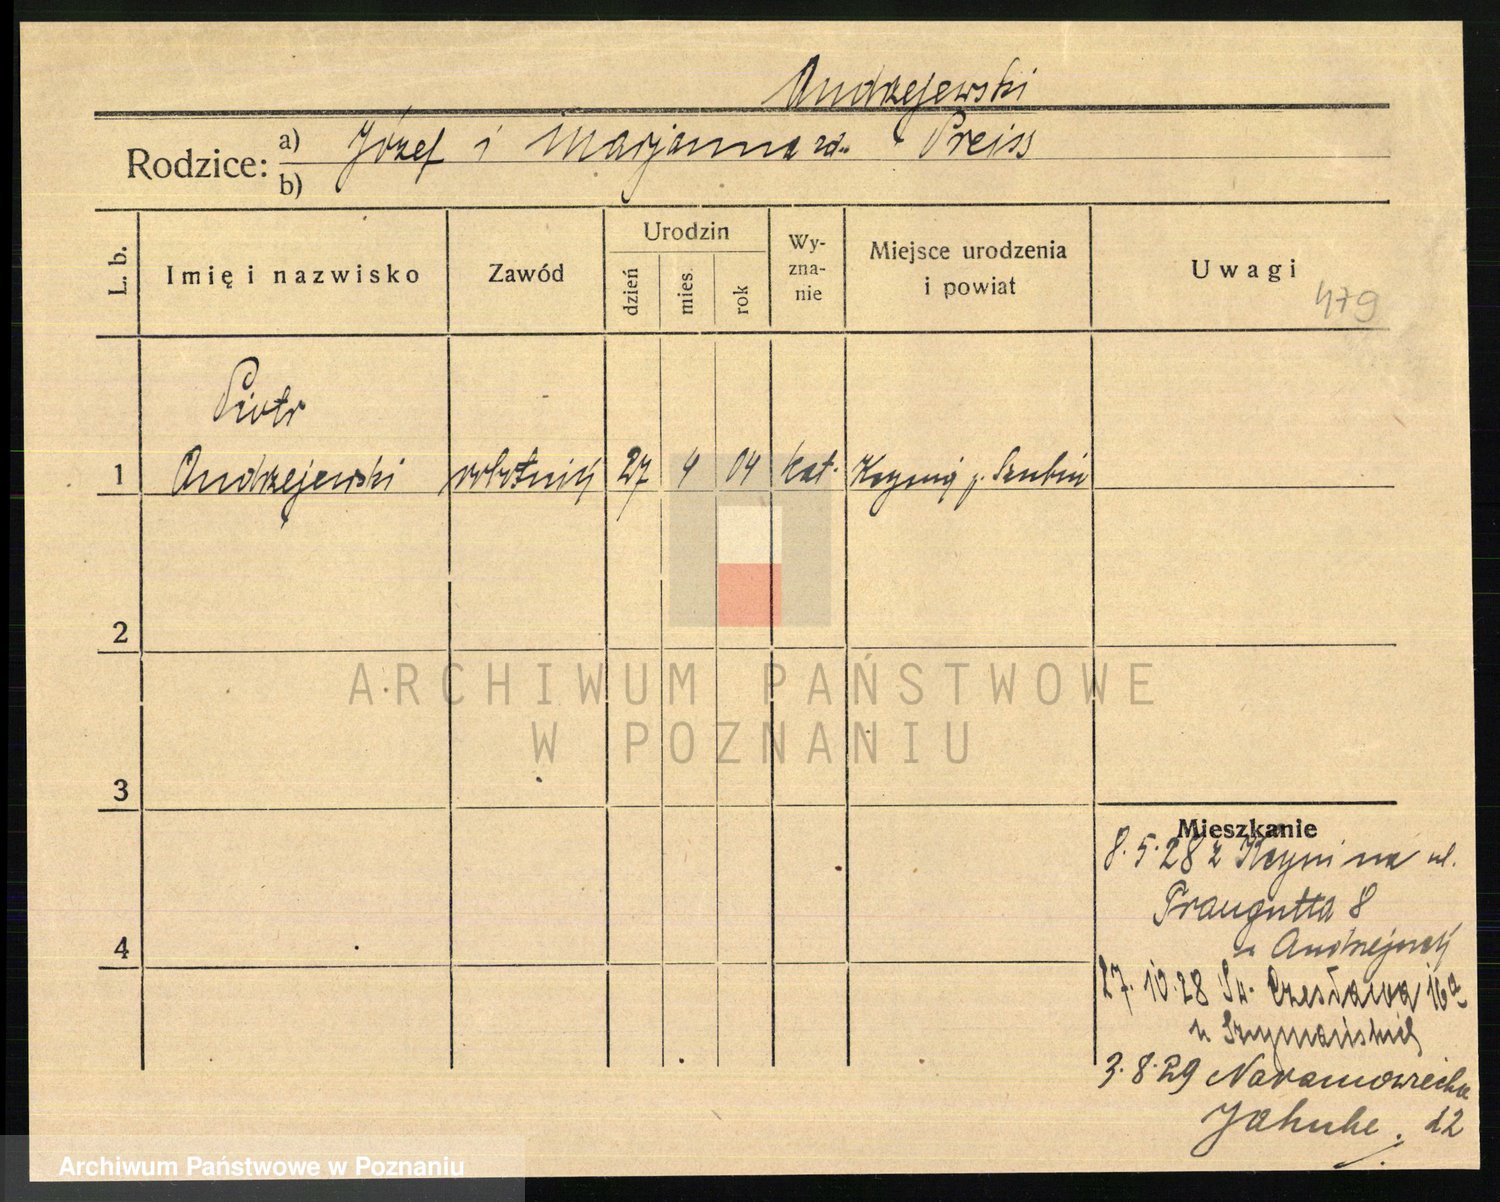 Andrzejewski
Rodzice: a) Józef i Marjanna zd. Preiss
b)
L. b.
Imię i nazwisko
Zawód
Urodzin
dzień
mies.
rok
Wy-
zna-
nie
Miejsce urodzenia
i powiat
Uwagi
479
Piotr
1 Andrzejewski robotnik 27 4 04 kat. Kcynia p. Szubin
2
3
4
ARCHIWUM PAŃSTWOWE
W POZNANIU
Mieszkanie
8.5.28 z Kcyni na ul.
Traugutta 8
u
27.10.28 Św. Czesława 16a
u Szymańskich
3.8.29 Naramowicka
12
Archiwum Państwowe w Poznaniu